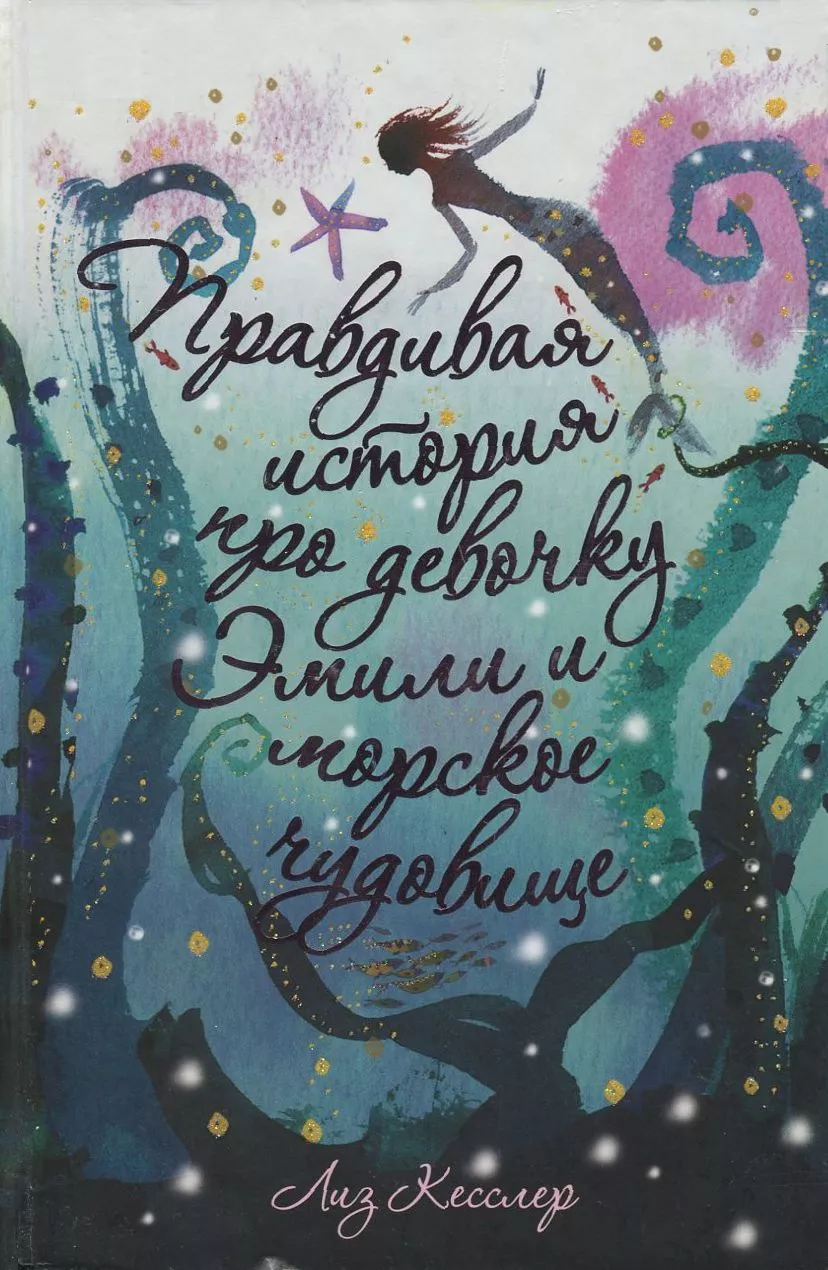 Правдивая
история
про девочку
Эмили и
морское
чудовище
Лиз Кесслер